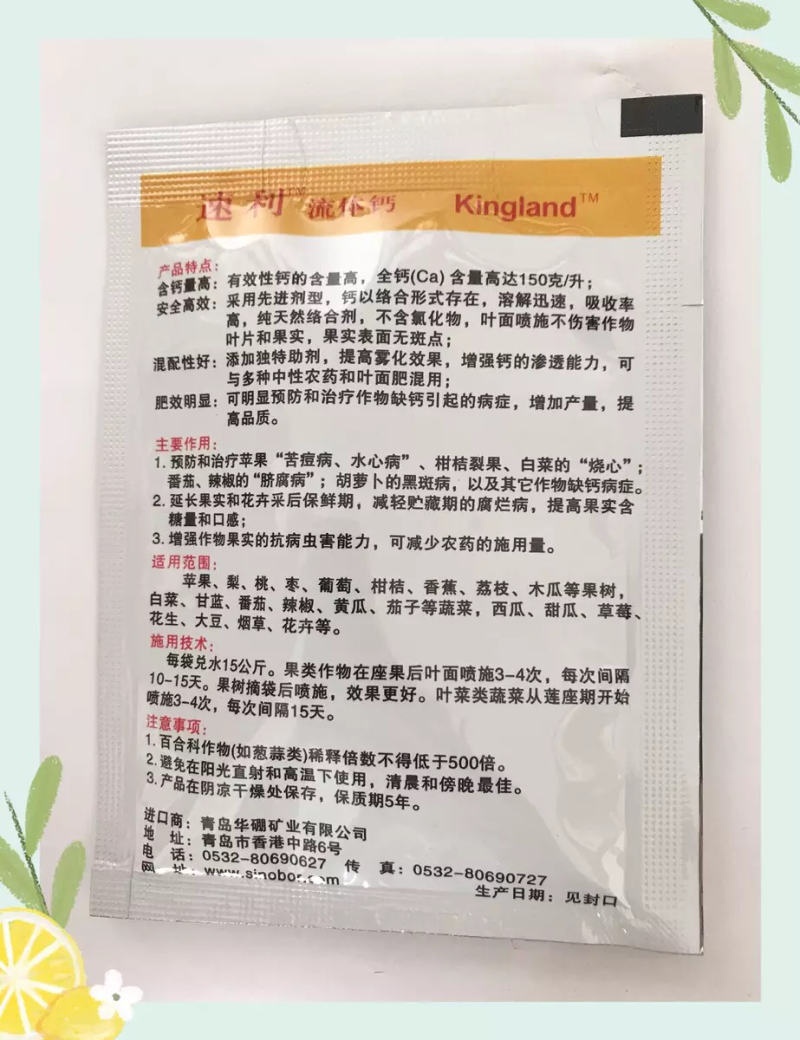 速利™ 流体钙 Kingland™
产品特点：
含钙量高：有效性钙的含量高，全钙(Ca) 含量高达150克/升；
安全高效：采用先进剂型，钙以络合形式存在，溶解迅速，吸收率
高，纯天然络合剂，不含氯化物，叶面喷施不伤害作物
叶片和果实，果实表面无斑点；
混配性好：添加独特助剂，提高雾化效果，增强钙的渗透能力，可
与多种中性农药和叶面肥混用；
肥效明显：可明显预防和治疗作物缺钙引起的病症，增加产量，提
高品质。
主要作用：
1. 预防和治疗苹果“苦痘病、水心病”、柑桔裂果、白菜的“烧心”；
番茄、辣椒的“脐腐病”；胡萝卜的黑斑病，以及其它作物缺钙病症。
2. 延长果实和花卉采后保鲜期，减轻贮藏期的腐烂病，提高果实含
糖量和口感；
3. 增强作物果实的抗病虫害能力，可减少农药的施用量。
适用范围：
苹果、梨、桃、枣、葡萄、柑桔、香蕉、荔枝、木瓜等果树，
白菜、甘蓝、番茄、辣椒、黄瓜、茄子等蔬菜，西瓜、甜瓜、草莓、
花生、大豆、烟草、花卉等。
施用技术：
每袋兑水15公斤。果类作物在座果后叶面喷施3-4次，每次间隔
10-15天。果树摘袋后喷施，效果更好。叶菜类蔬菜从莲座期开始
喷施3-4次，每次间隔15天。
注意事项：
1. 百合科作物(如葱蒜类)稀释倍数不得低于500倍。
2. 避免在阳光直射和高温下使用，清晨和傍晚最佳。
3. 产品在阴凉干燥处保存，保质期5年。
进口商：青岛华硼矿业有限公司
地 址：青岛市香港中路6号
电 话：0532-80690627 传 真：0532-80690727
网 址：www.sinobor.com
生产日期：见封口